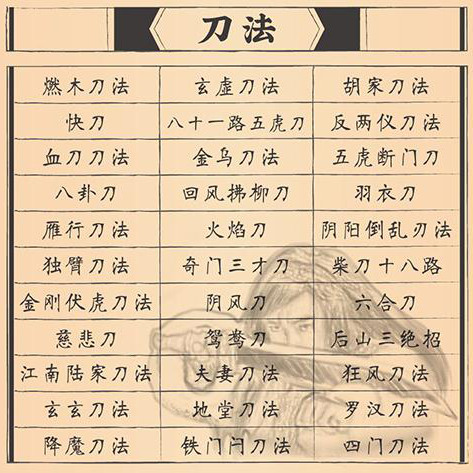 刀法
燃木刀法 玄虚刀法 胡家刀法
快刀 八十一路五虎刀 反两仪刀法
血刀刀法 金乌刀法 五虎断门刀
八卦刀 回风拂柳刀 羽衣刀
雁行刀法 火焰刀 阴阳倒乱刃法
独臂刀法 奇门三才刀 柴刀十八路
金刚伏虎刀法 阴风刀 六合刀
慈悲刀 鸳鸯刀 后山三绝招
江南陆家刀法 夫妻刀法 狂风刀法
玄玄刀法 地堂刀法 罗汉刀法
降魔刀法 铁门闩刀法 四门刀法